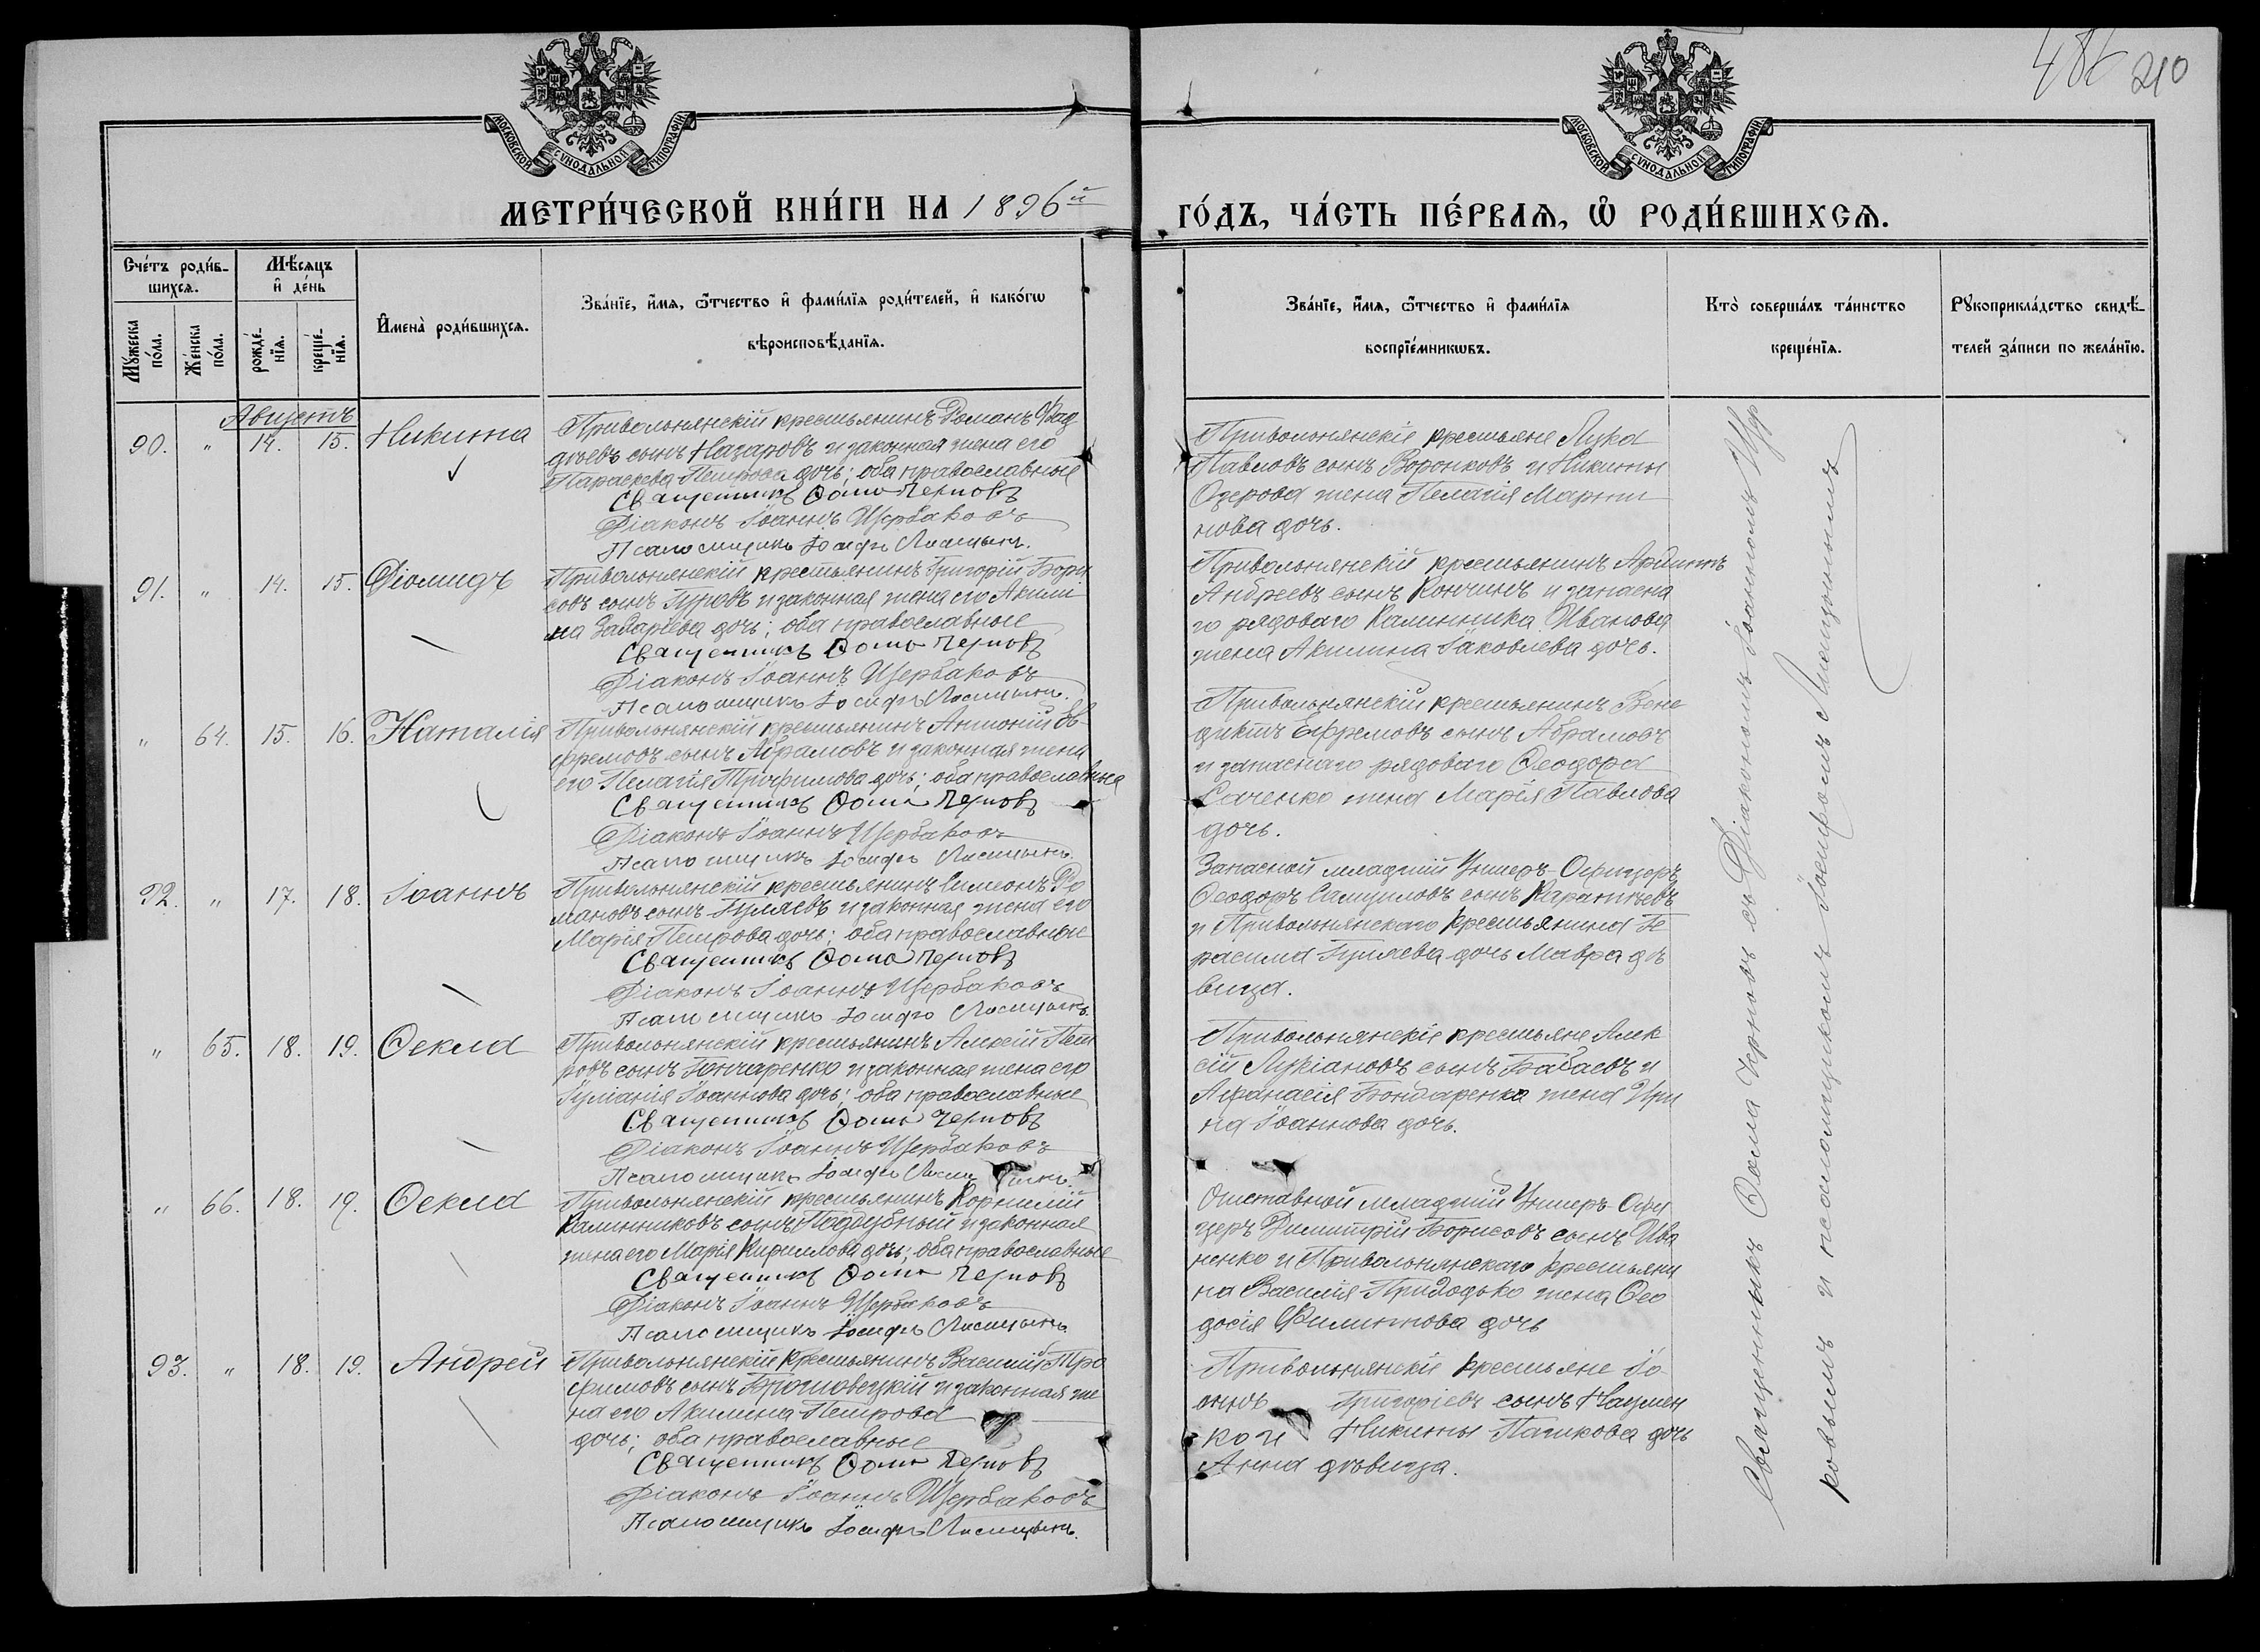 486 210
МОСКОВСКОЙ СѴНОДАЛЬНОЙ ТИПОГРАФІИ
МОСКОВСКОЙ СѴНОДАЛЬНОЙ ТИПОГРАФІИ
МЕТРИ́ЧЕСКОЙ КНИ́ГИ НА 1896й
ГО́ДЪ, ЧА́СТЬ ПЕ́РВАѦ, Ѡ҆ РОДИ́ВШИХСѦ.
Сче́тъ роди́в-
шихсѧ.
Мѣ́сѧцъ
и҆ де́нь
Мꙋ́жеска
по́ла.
Же́нска
по́ла.
рожде́-
нїѧ.
креще́-
нїѧ.
И҆мена̀ роди́вшихсѧ.
Зва́нїе, и҆́мѧ, ѻ҆́тчество и҆ фами́лїѧ роди́телей, и҆ како́гѡ
вѣроисповѣ́данїѧ.
Зва́нїе, и҆́мѧ, ѻ҆́тчество и҆ фами́лїѧ
воспрїе́мникѡвъ.
Кто̀ соверша́лъ та́инство
креще́нїѧ.
Рꙋкоприкла́дство свидѣ́-
телей за́писи по жела́нїю.
Августъ
90. " 14. 15. Никита
Привольнянскій крестьянинъ Романъ Фад
дѣевъ сынъ Назаровъ и законная жена его
Параскева Петрова дочь; оба православные
Священникъ Ѳома Черновъ
Діаконъ Іоаннъ Щербаковъ
Псаломщикъ Іосифъ Лисицынъ.
Привольнянскіе крестьяне Лука
Павловъ сынъ Воронковъ и Никиты
Озерова жена Пелагія Марти
нова дочь.
91. " 14. 15. Діомидъ
Привольнянскій крестьянинъ Григорій Бори
совъ сынъ Гуровъ и законная жена его Акили
на Захаріева дочь; оба православные
Священникъ Ѳома Черновъ
Діаконъ Іоаннъ Щербаковъ
Псаломщикъ Іосифъ Лисицынъ.
Привольнянскій крестьянинъ
Андреевъ сынъ Кончинъ и запасна
го рядоваго Калинника Иванова
жена Акилина Іаковлева дочь.
" 64. 15. 16. Наталія
Привольнянскій крестьянинъ Антоній Еѳ-
фремовъ сынъ Абрамовъ и законная жена
его Пелагія Трифимова дочь; оба православные
Священникъ Ѳома Черновъ
Діаконъ Іоаннъ Щербаковъ
Псаломщикъ Іосифъ Лисицынъ.
Привольнянскій крестьянинъ Вене
диктъ Ефремовъ сынъ Абрамовъ
и запаснаго рядоваго Ѳеодора
Саченко жена Марія Павлова
дочь.
92. " 17. 18. Іоаннъ
Привольнянскій крестьянинъ Симеонъ Ро
мановъ сынъ Гуляевъ и законная жена его
Марія Петрова дочь; оба православные
Священникъ Ѳома Черновъ
Діаконъ Іоаннъ Щербаковъ
Псаломщикъ Іосифъ Лисицынъ.
Запасной младшій Унтеръ-Офицеръ
Ѳеодоръ Самуиловъ сынъ
и Привольнянскаго крестьянина Ге
расима Гуляева дочь Мавра дѣ
вица.
" 65. 18. 19. Ѳекла
Привольнянскій крестьянинъ Алексій Пет
ровъ сынъ Гончаренко и законная жена его
Іуліанія Іоаннова дочь; оба православные
Священникъ Ѳома Черновъ
Діаконъ Іоаннъ Щербаковъ
Псаломщикъ Іосифъ Лисицынъ.
Привольнянскіе крестьяне Алек
сій Лукіановъ сынъ Бабаевъ и
Аѳанасія Бондаренка жена Ири
на Іоаннова дочь.
" 66. 18. 19. Ѳекла
Привольнянскій крестьянинъ Корнилій
Калинниковъ сынъ Поддубный и законная
жена его Марія Кириллова дочь; оба православные
Священникъ Ѳома Черновъ
Діаконъ Іоаннъ Щербаковъ
Псаломщикъ Іосифъ Лисицынъ.
Отставной младшій Унтеръ-Офи
церъ Димитрій Борисовъ сынъ Ива
ненко и Привольнянскаго крестьяни
на Василія Приходько жена Ѳео
досія Филиппова дочь
93. " 18. 19. Андрей
Привольнянскій крестьянинъ Василій Тро
фимовъ сынъ и законная же
на его Акилина Петрова
дочь; оба православные
Священникъ Ѳома Черновъ
Діаконъ Іоаннъ Щербаковъ
Псаломщикъ Іосифъ Лисицынъ.
Привольнянскіе крестьяне Іо
аннъ Григоріевъ сынъ Наумен
ко и Никиты Пашкова дочь
Анна дѣвица.
Священникъ Ѳома Черновъ съ Діакономъ Іоанномъ Щер
баковымъ и псаломщикомъ Іосифомъ Лисицынымъ